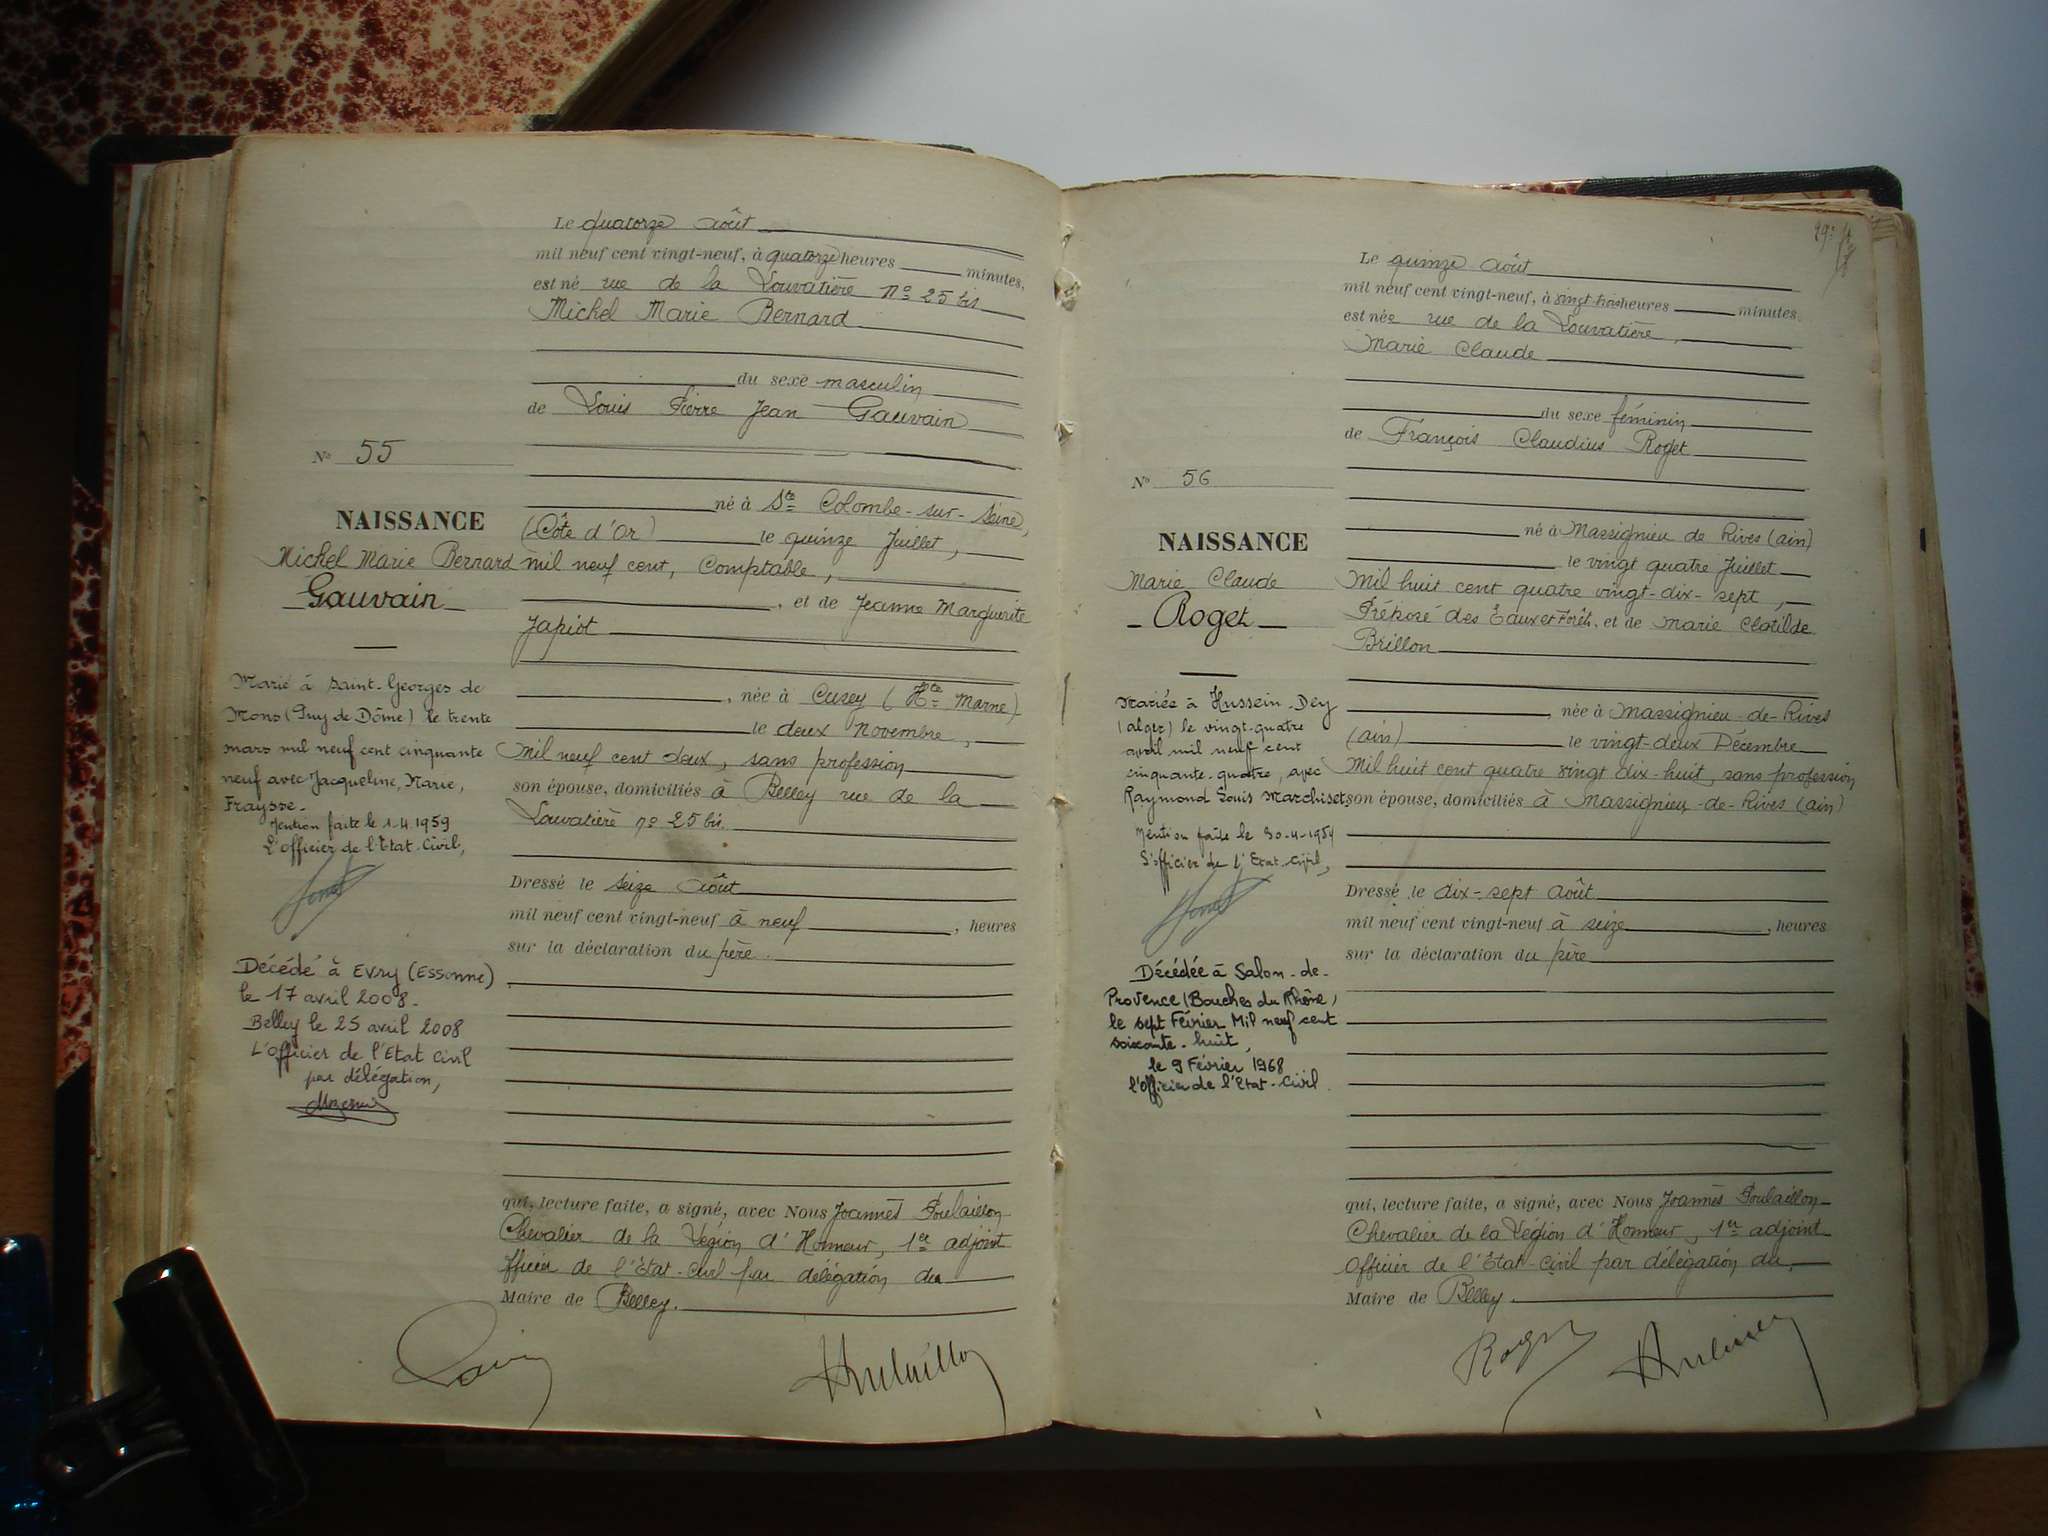 Le quatorze Août
mil neuf cent vingt-neuf, à quatorze heures minutes,
est né rue de la Louvatière nº 25 bis
Michel Marie Bernard
du sexe masculin
de Louis Pierre Jean Gauvain
Nº 55
né à Ste Colombe-sur-Seine,
NAISSANCE
(Côte d'Or) le quinze Juillet,
Michel Marie Bernard
mil neuf cent, Comptable,
Gauvain
, et de Jeanne Marguerite
Japiot
Marié à Saint-Georges de
Mons (Puy de Dôme) le trente
mars mil neuf cent cinquante
neuf avec Jacqueline, Marie,
Fraysse.
Mention faite le 1-4 1959
L'Officier de l'Etat-Civil,
, née à Cusey (Hte Marne)
le deux Novembre,
mil neuf cent deux, sans profession
son épouse, domiciliés à Belley rue de la
Louvatière nº 25 bis.
Dressé le seize Août
mil neuf cent vingt-neuf à neuf , heures
sur la déclaration du père.
Décédé à Evry (Essonne)
le 17 avril 2008.
Belley le 25 avril 2008
L'Officier de l'Etat Civil
par délégation,
qui, lecture faite, a signé, avec Nous Joannès Poulaillon
Chevalier de la Légion d'Honneur, 1er adjoint
fficier de l'État-Civil par délégation du
Maire de Belley.
Le quinze Août
mil neuf cent vingt-neuf, à vingt-trois heures minutes.
est née rue de la Louvatière,
Marie Claude
du sexe féminin
de François Claudius Roget
Nº 56
né à Massignieu de Rives (ain)
NAISSANCE
le vingt quatre Juillet
Marie Claude
Mil huit cent quatre vingt-dix-sept,
Roget
Préposé des Eaux et Forêts, et de Marie Clotilde
Brillon
Mariée à Hussein-Dey
(alger) le vingt-quatre
avril mil neuf cent
cinquante-quatre, avec
Raymond Louis Marchiset
Mention faite le 30-4-1954
L'officier de l'Etat-Civil,
, née à Massignieu-de-Rives
(ain) le vingt-deux Décembre
Mil huit cent quatre vingt dix-huit, sans profession
son épouse, domiciliés à Massignieu-de-Rives (ain)
Dressé le dix-sept Août
mil neuf cent vingt-neuf à seize , heures
sur la déclaration du père
Décédée à Salon-de-
Provence (Bouches du Rhône)
le sept Février Mil neuf cent
soixante-huit,
le 9 Février 1968
l'Officier de l'Etat-Civil.
qui, lecture faite, a signé, avec Nous Joannès Poulaillon
Chevalier de la Légion d'Honneur, 1er adjoint
Officier de l'État-Civil par délégation du
Maire de Belley.
Roget